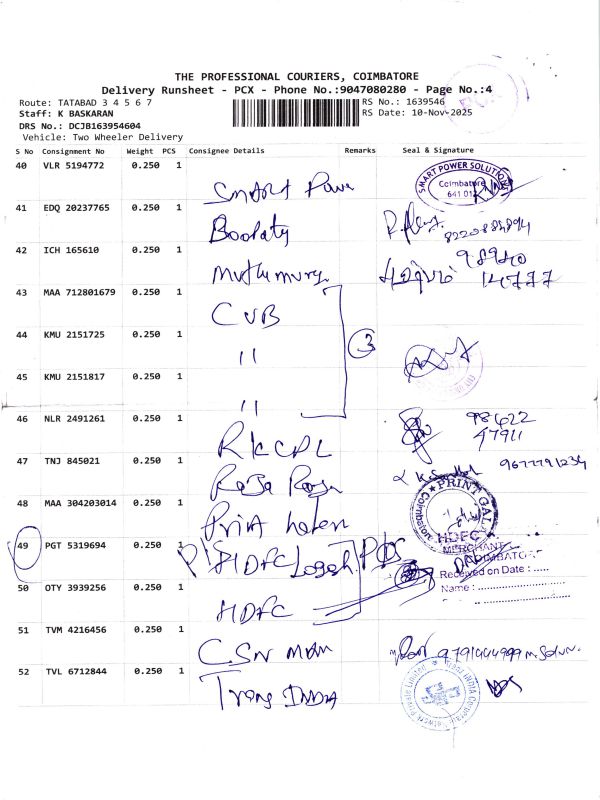 THE PROFESSIONAL COURIERS, COIMBATORE
Delivery Runsheet - PCX - Phone No.:9047080280 - Page No.:4
Route: TATABAD 3 4 5 6 7
RS No.: 1639546
Staff: K BASKARAN
RS Date: 10-Nov-2025
DRS No.: DCJB163954604
Vehicle: Two Wheeler Delivery
S No Consignment No Weight PCS Consignee Details Remarks Seal & Signature
40 VLR 5194772 0.250 1 Smart Power SMART POWER SOLUTIONS Coimbatore 641 012
41 EDQ 20237765 0.250 1
42 ICH 165610 0.250 1 98940 14777
43 MAA 712801679 0.250 1 CUB
44 KMU 2151725 0.250 1 " 3
45 KMU 2151817 0.250 1 "
46 NLR 2491261 0.250 1 98422 47911
47 TNJ 845021 0.250 1 Raja 9677791234
48 MAA 304203014 0.250 1 Print PRINT GALA Coimbatore
49 PGT 5319694 0.250 1 HDFC HDFC MERCHANT COIMBATORE
Received on Date : .....
50 OTY 3939256 0.250 1 HDFC Name :
51 TVM 4216456 0.250 1 CSN 9791444999
52 TVL 6712844 0.250 1 Trans INDIA